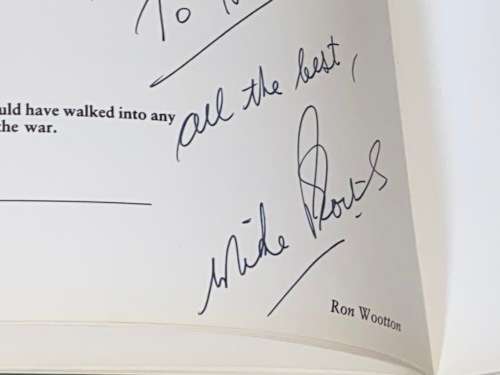 To
all the best,
uld have walked into any
the war.
Mike
Ron Wootton